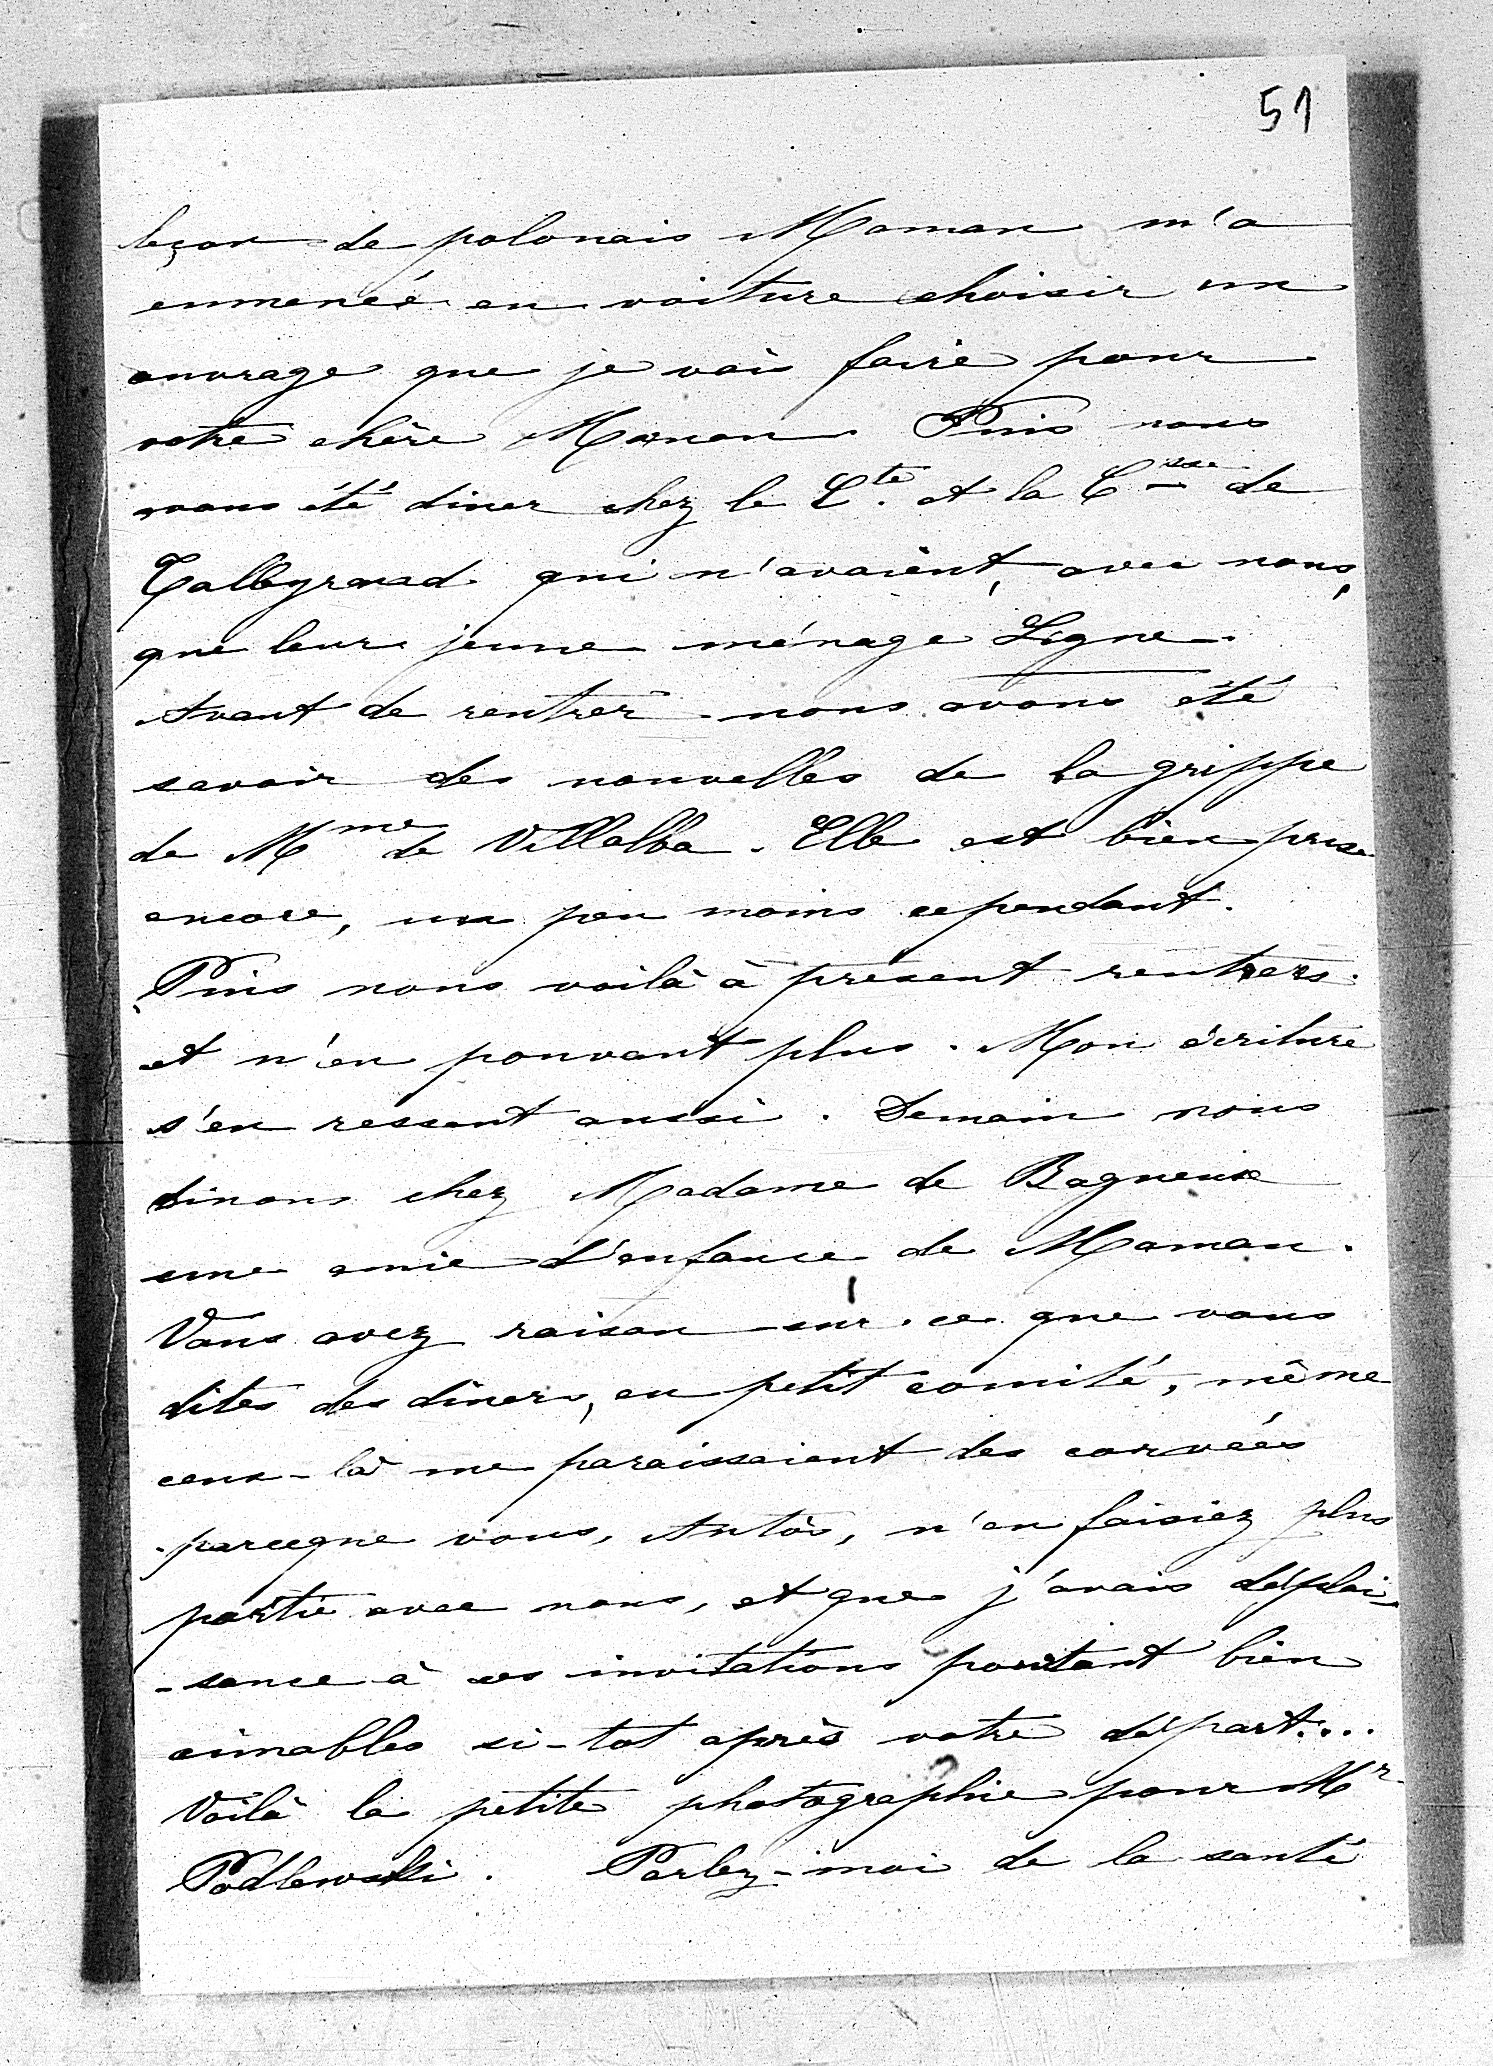 51
leçon de polonais Maman m'a
emmenée en voiture choisir un
ouvrage que je vais faire pour
votre chère Maman. Puis nous
avons été diner chez le Cte. et la Csse de
Talleyrand qui n'avaient, avec nous,
que leur jeune ménage Ligne.
Avant de rentrer nous avons été
savoir des nouvelles de la grippe
de Mme de Villalba. Elle est bien prise
encore, un peu moins cependant.
Puis nous voilà à présent rentrées
et n'en pouvant plus. Mon écriture
s'en ressent aussi. Demain nous
dinons chez Madame de Bagneux
une amie d'enfance de Maman.
Vous avez raison sur ce que vous
dites des diners, en petit comité, même
ceux-là me paraissaient des corvées
parceque vous, Antôs, n'en faisiez plus
partie avec nous, et que j'avais déplai-
-sance à ces invitations pourtant bien
aimables si-tot après votre départ...
Voilà la petite photographie pour Mr
Podlewski. Parlez-moi de la santé